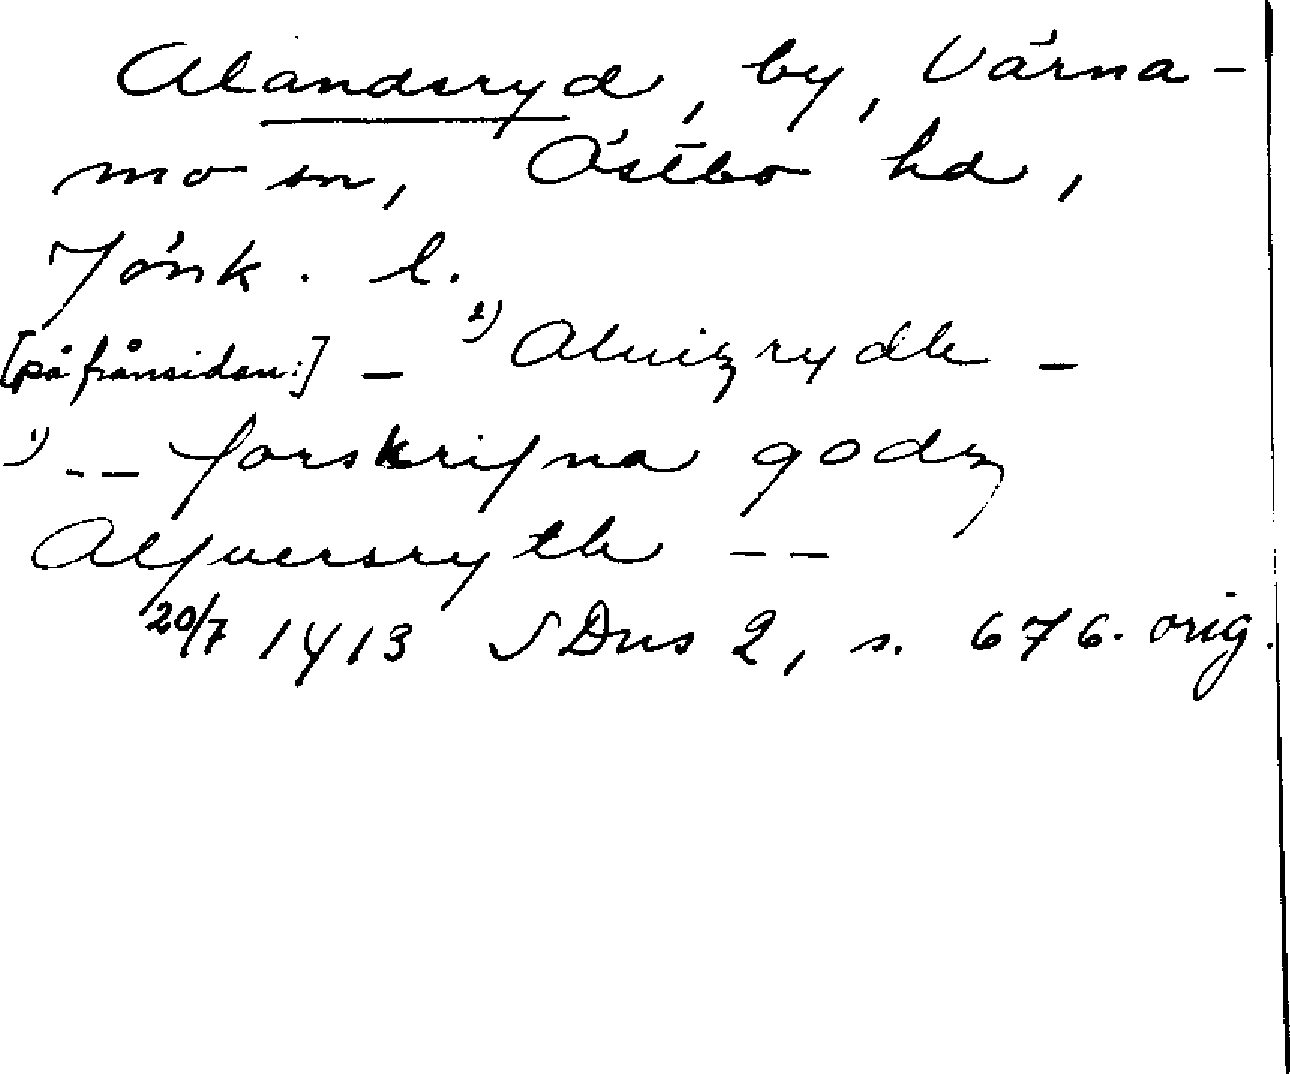 Alandsryd, by, Värna-
mo sn, Östbo hd,
Jönk. l.
[på frånsidan:] – ²⁾ Aluizrydh –
¹⁾ -- forskrifna godz
Alfuersryth --
20/7 1413 SDns 2, s. 676. orig.